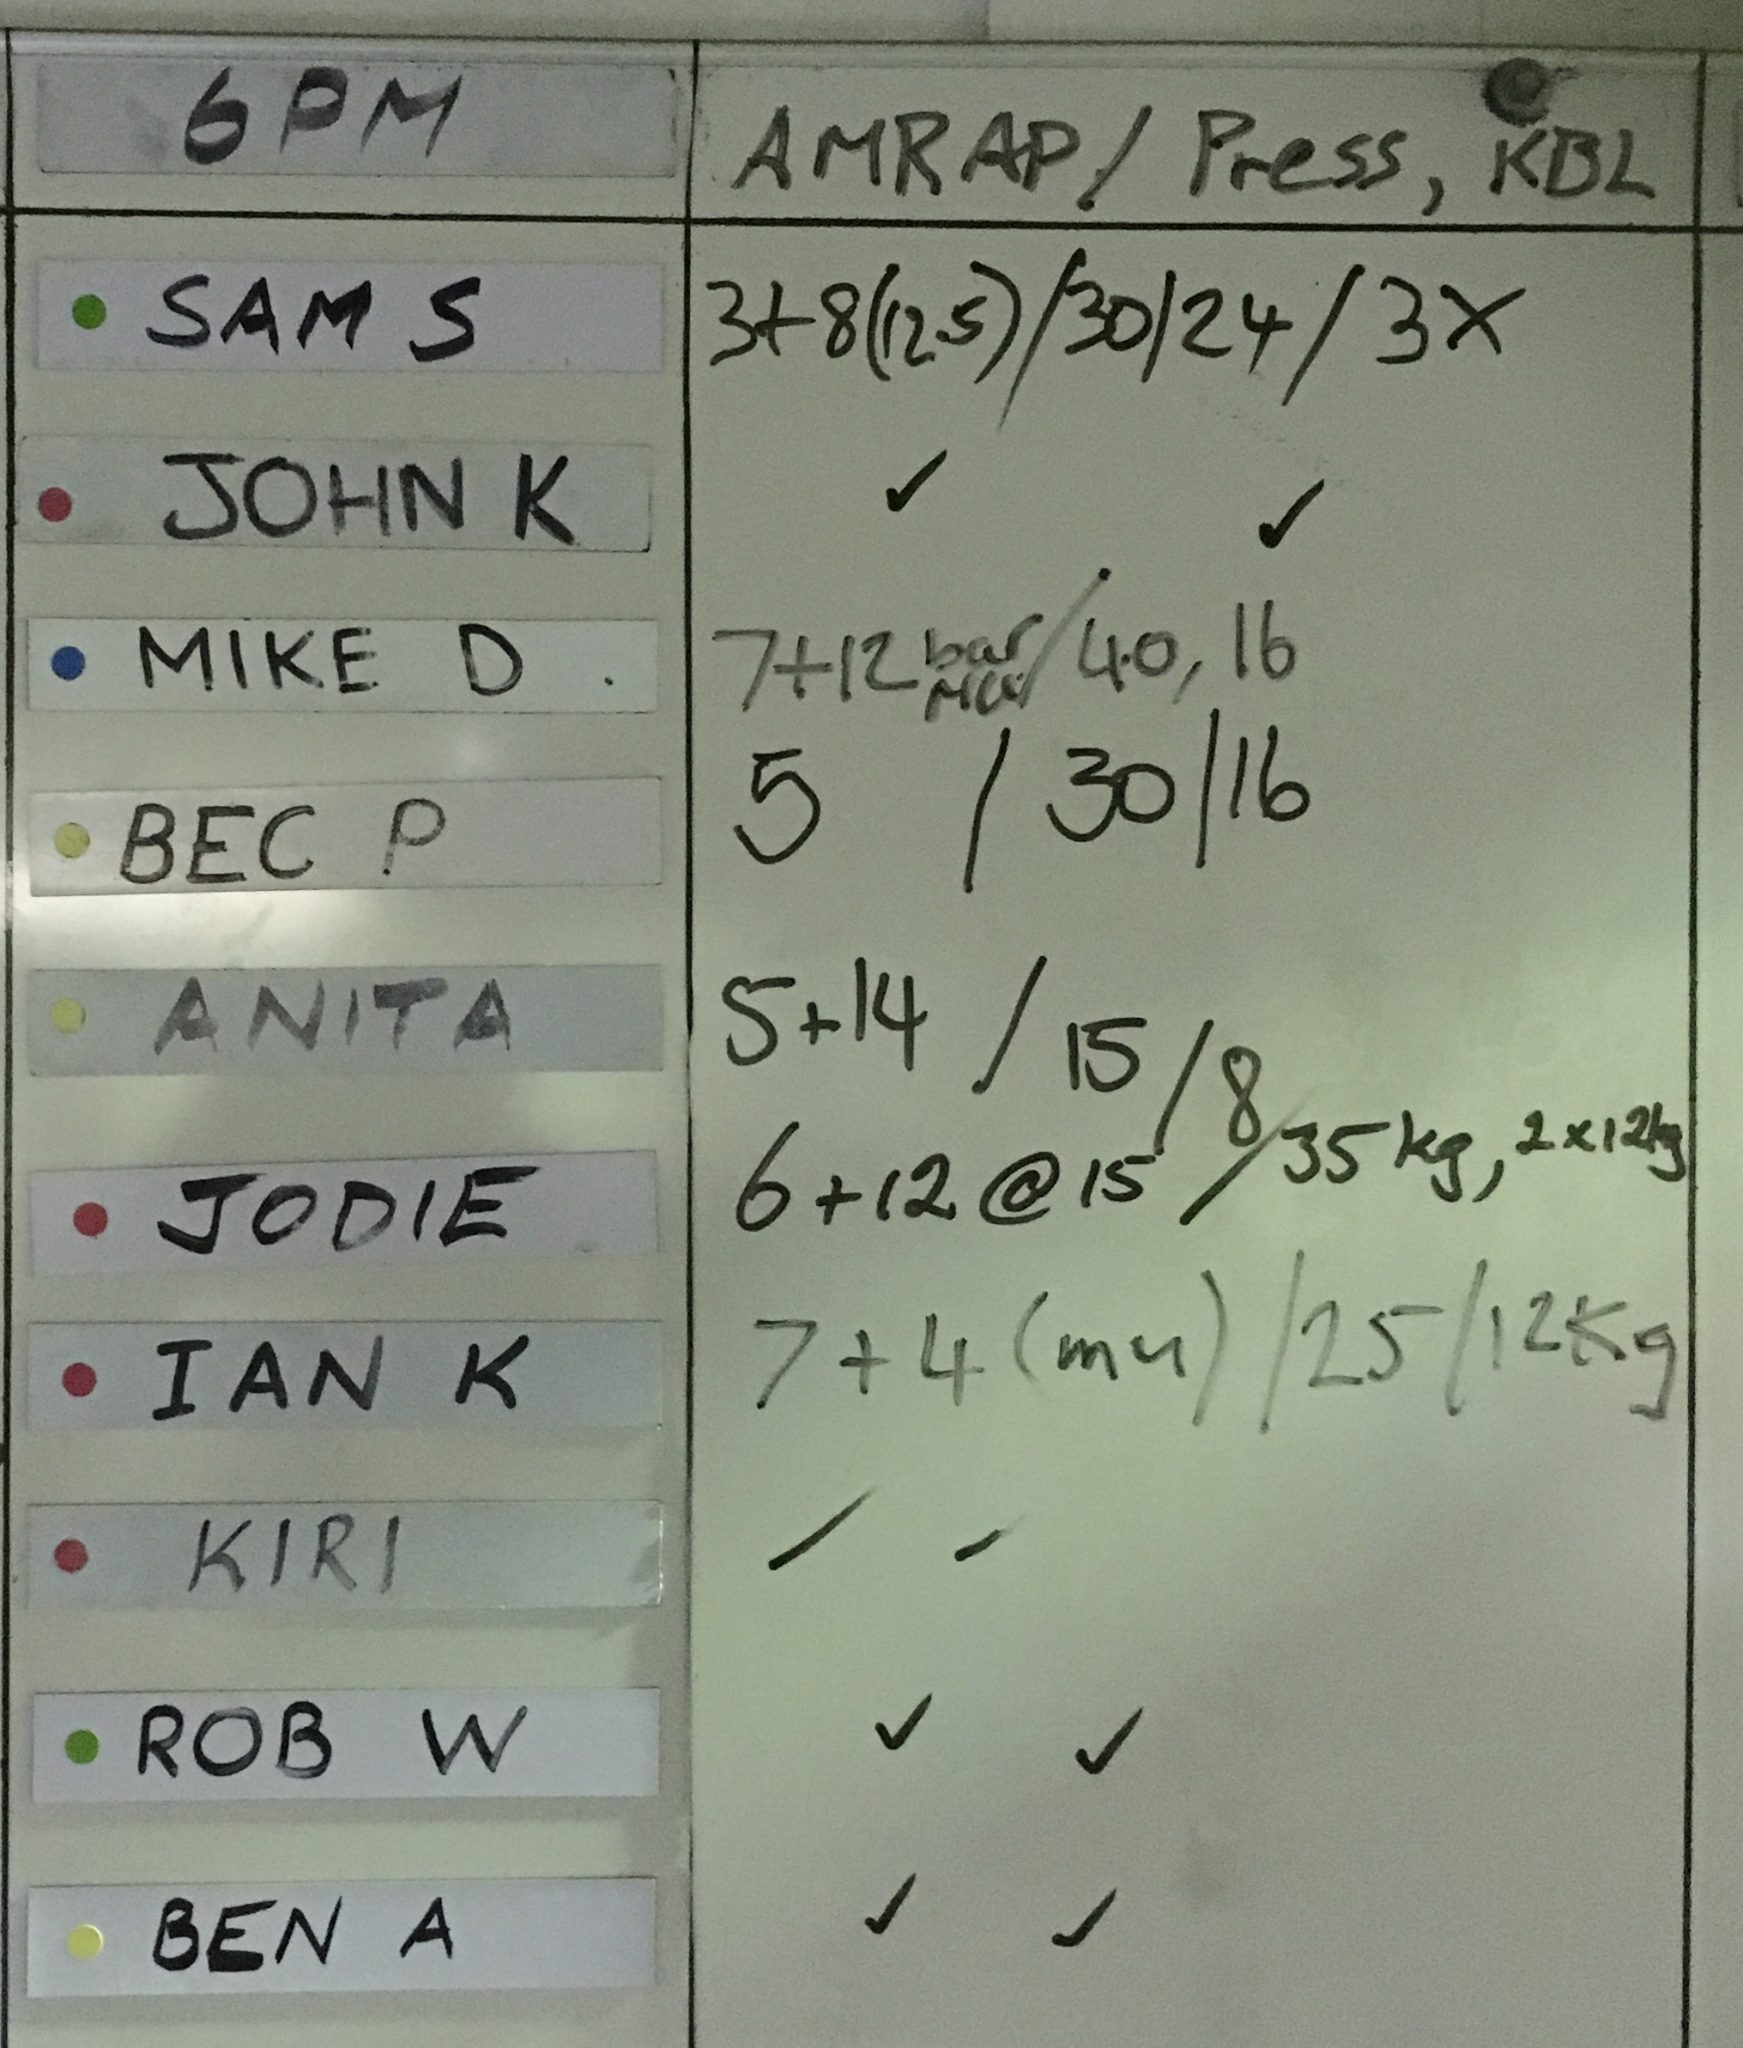 6PM AMRAP / Press, KBL
SAM S 3+8(12.5)/30/24/3X
JOHN K ✓ ✓
MIKE D . 7+12 bar MU / 40, 16
BEC P 5 / 30/16
ANITA 5+14 / 15 / 8
JODIE 6+12@15 / 35kg, 2x12kg
IAN K 7+4 (mu) /25/12Kg
KIRI
ROB W ✓ ✓
BEN A ✓ ✓